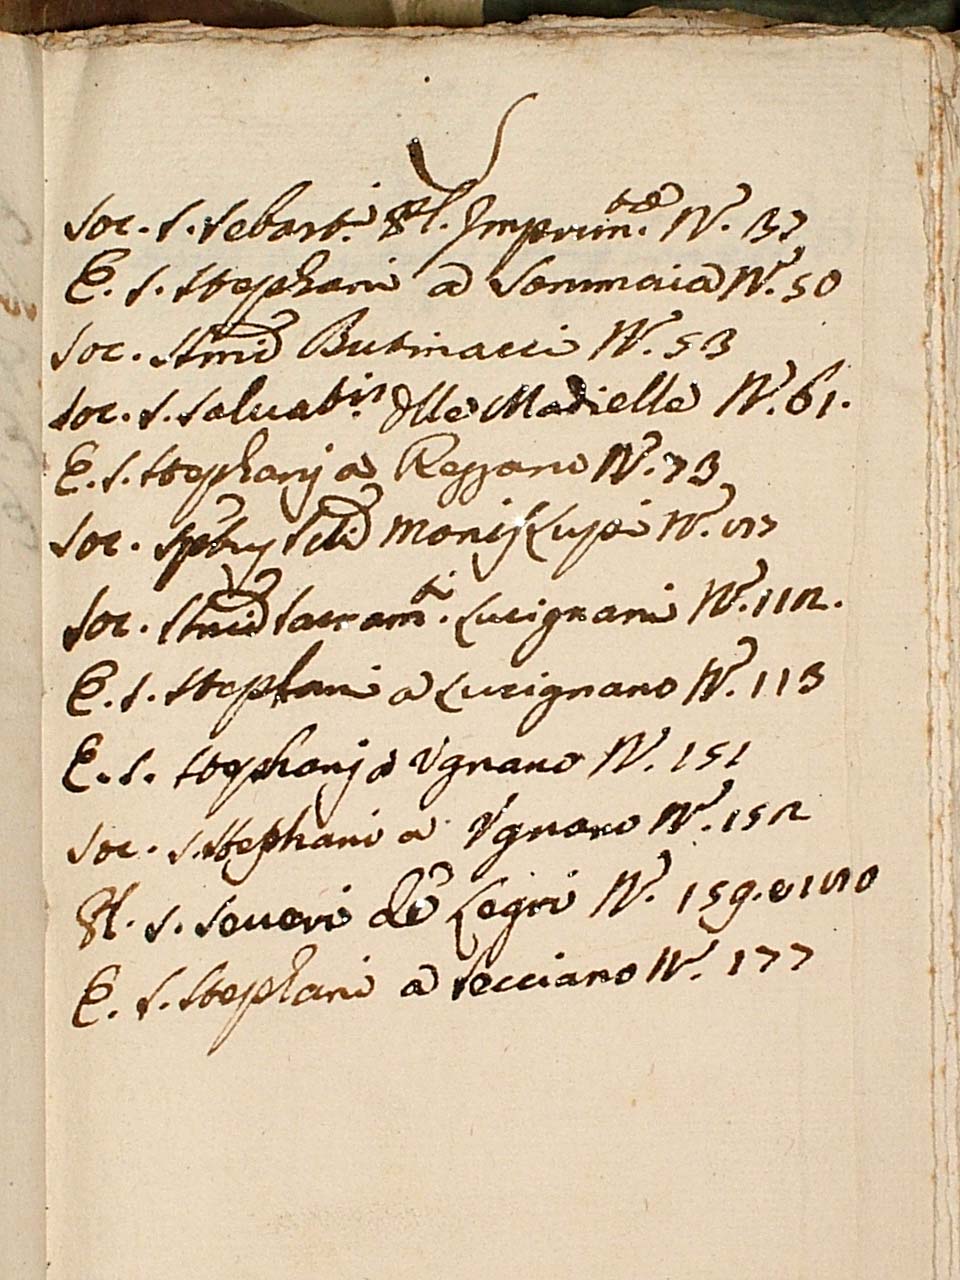 S
Soc. S. Sebast.i Pl. Imprun.tæ N.o 37
E. S. Stephani a Sommaia N.o 50
Soc. SSmi Butinacci N.o 53
Soc. S. Saluat.ris dlle Madielle N.o 61.
E. S. Stephanj a N.o 73
Soc. Montis Lupi N.o
Soc. SSmi Sacram.ti Lucignani N.o 112.
E. S. Stephani a Lucignano N.o 113
E. S. Stephanj a Vgnano N.o 151
Soc. S. Stephani a Vgnano N.o 152
Pl. S. Seueri de Legri N.o 159. e 180
E. S. Stephani a Secciano N.o 177